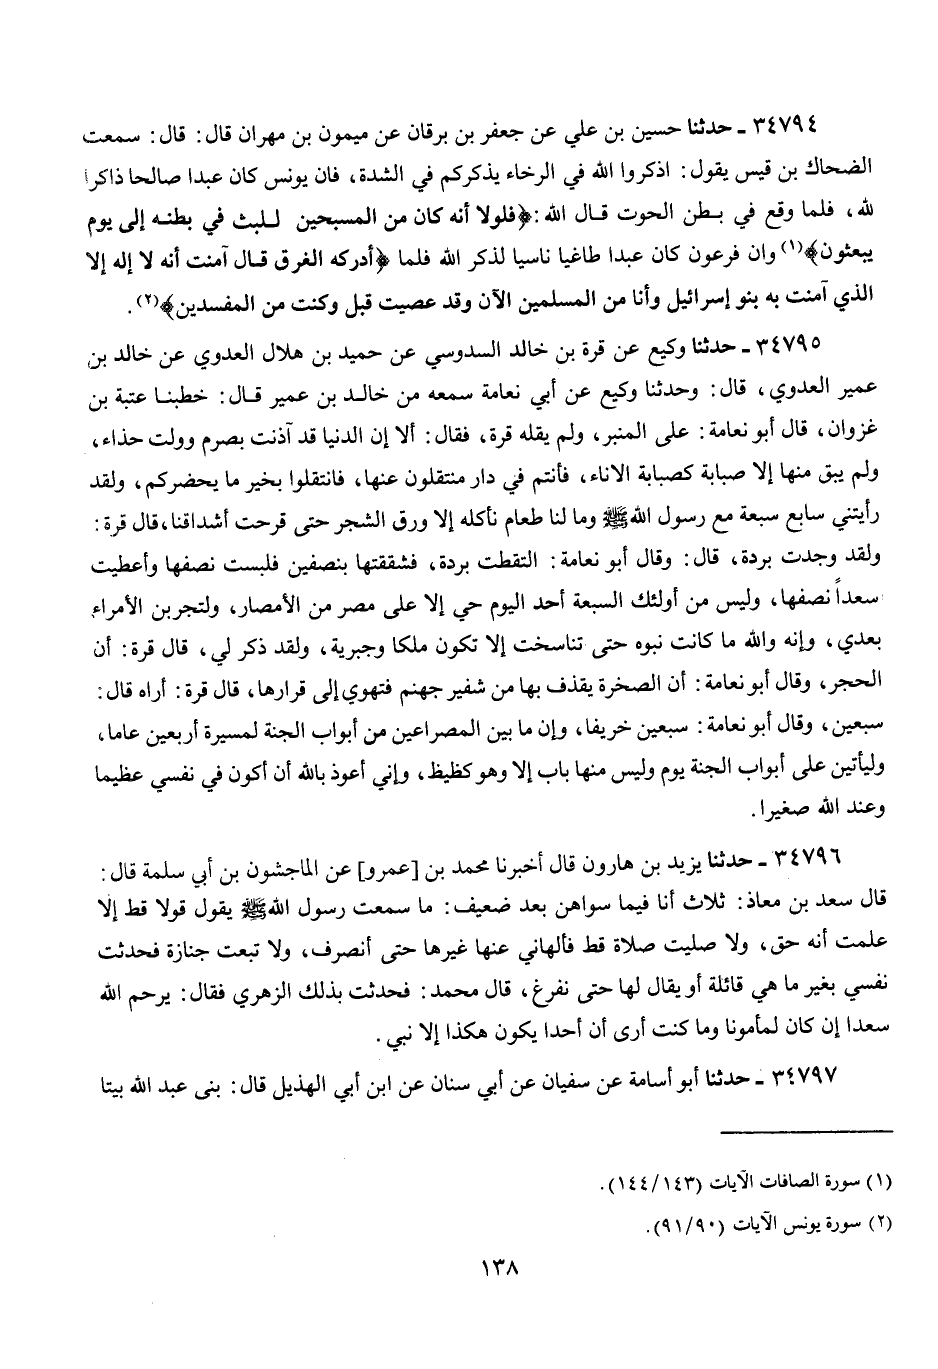 ٣٤٧٩٤ ـ حدثنا حسين بن علي عن جعفر بن برقان عن ميمون بن مهران قال: قال: سمعت
الضحاك بن قيس يقول: اذكروا الله في الرخاء يذكركم في الشدة، فان يونس كان عبدا صالحا ذاكرا
لله، فلما وقع في بطن الحوت قال الله: ﴿فلولا أنه كان من المسبحين للبث في بطنه إلى يوم
يبعثون﴾(١) وان فرعون كان عبدا طاغيا ناسيا لذكر الله فلما ﴿أدركه الغرق قال آمنت أنه لا إله إلا
الذي آمنت به بنو إسرائيل وأنا من المسلمين الآن وقد عصيت قبل وكنت من المفسدين﴾(٢).
٣٤٧٩٥ ـ حدثنا وكيع عن قرة بن خالد السدوسي عن حميد بن هلال العدوي عن خالد بن
عمير العدوي، قال: وحدثنا وكيع عن أبي نعامة سمعه من خالد بن عمير قال: خطبنا عتبة بن
غزوان، قال أبو نعامة: على المنبر، ولم يقله قرة، فقال: ألا إن الدنيا قد آذنت بصرم وولت حذاء،
ولم يبق منها إلا صبابة كصبابة الاناء، فأنتم في دار منتقلون عنها، فانتقلوا بخير ما يحضركم، ولقد
رأيتني سابع سبعة مع رسول الله ﷺ وما لنا طعام نأكله إلا ورق الشجر حتى قرحت أشداقنا، قال قرة:
ولقد وجدت بردة، قال: وقال أبو نعامة: التقطت بردة، فشققتها بنصفين فلبست نصفها وأعطيت
سعداً نصفها، وليس من أولئك السبعة أحد اليوم حي إلا على مصر من الأمصار، ولتجربن الأمراء
بعدي، وإنه والله ما كانت نبوه حتى تناسخت إلا تكون ملكا وجبرية، ولقد ذكر لي، قال قرة: أن
الحجر، وقال أبو نعامة: أن الصخرة يقذف بها من شفير جهنم فتهوي إلى قرارها، قال قرة: أراه قال:
سبعين، وقال أبو نعامة: سبعين خريفا، وإن ما بين المصراعين من أبواب الجنة لمسيرة أربعين عاما،
وليأتين على أبواب الجنة يوم وليس منها باب إلا وهو كظيظ، وإني أعوذ بالله أن أكون في نفسي عظيما
وعند الله صغيرا.
٣٤٧٩٦ ـ حدثنا يزيد بن هارون قال أخبرنا محمد بن [عمرو] عن الماجشون بن أبي سلمة قال:
قال سعد بن معاذ: ثلاث أنا فيما سواهن بعد ضعيف: ما سمعت رسول الله ﷺ يقول قولا قط إلا
علمت أنه حق، ولا صليت صلاة قط فألهاني عنها غيرها حتى أنصرف، ولا تبعت جنازة فحدثت
نفسي بغير ما هي قائلة أو يقال لها حتى نفرغ، قال محمد: فحدثت بذلك الزهري فقال: يرحم الله
سعدا إن كان لمأمونا وما كنت أرى أن أحدا يكون هكذا إلا نبي.
٣٤٧٩٧ ـ حدثنا أبو أسامة عن سفيان عن أبي سنان عن ابن أبي الهذيل قال: بنى عبد الله بيتا
(١) سورة الصافات الآيات (١٤٤/١٤٣).
(٢) سورة يونس الآيات (٩١/٩٠).
١٣٨